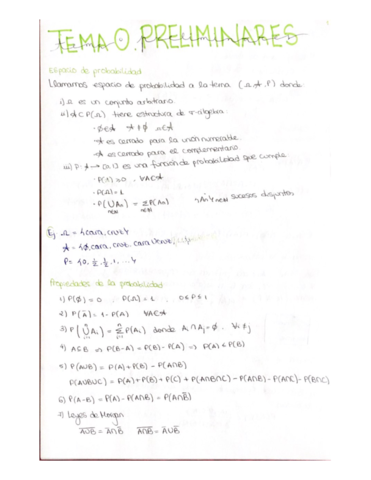 TEMA 0. PRELIMINARES
Espacio de probabilidad
Llamamos espacio de probabilidad a la terna (Ω, A, P) donde
i) Ω es un conjunto arbitrario
ii) A ⊂ P(Ω) tiene estructura de σ-algebra
A es cerrado para la unión numerable.
A es cerrado para el complementario
iii) P: A → [0,1] es una función de probabilidad que cumple
· P(A) ≥ 0 ∀A∈A
· P(Ω) = 1
· P(⋃ An) = Σ P(An) sucesos disjuntos
n∈N n∈N
Ej Ω = {cara, cruz}
A = {∅, cara, cruz, cara y cruz}
P = {0, 1/2, 1/2, 1, ... }
Propiedades de la probabilidad
1) P(∅) = 0 P(Ω) = 1 0 ≤ P ≤ 1
2) P(Ā) = 1 - P(A) ∀A∈A
3) P(⋃ Ai) = Σ P(Ai) donde Ai ∩ Aj = ∅ ∀i ≠ j
4) A ⊆ B ⇒ P(B-A) = P(B) - P(A) ⇒ P(A) ≤ P(B)
5) P(A∪B) = P(A) + P(B) - P(A∩B)
P(A∪B∪C) = P(A) + P(B) + P(C) + P(A∩B∩C) - P(A∩B) - P(A∩C) - P(B∩C)
6) P(A-B) = P(A) - P(A∩B) = P(A∩B̄)
7) Leyes de Morgan